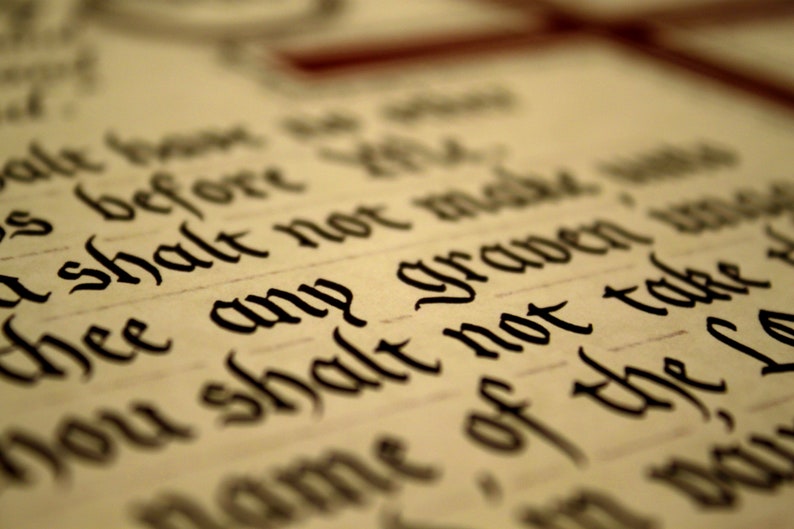 shalt have no other
before Me.
shalt not make unto
thee any graven image
thou shalt not take
name of the Lo
in vain